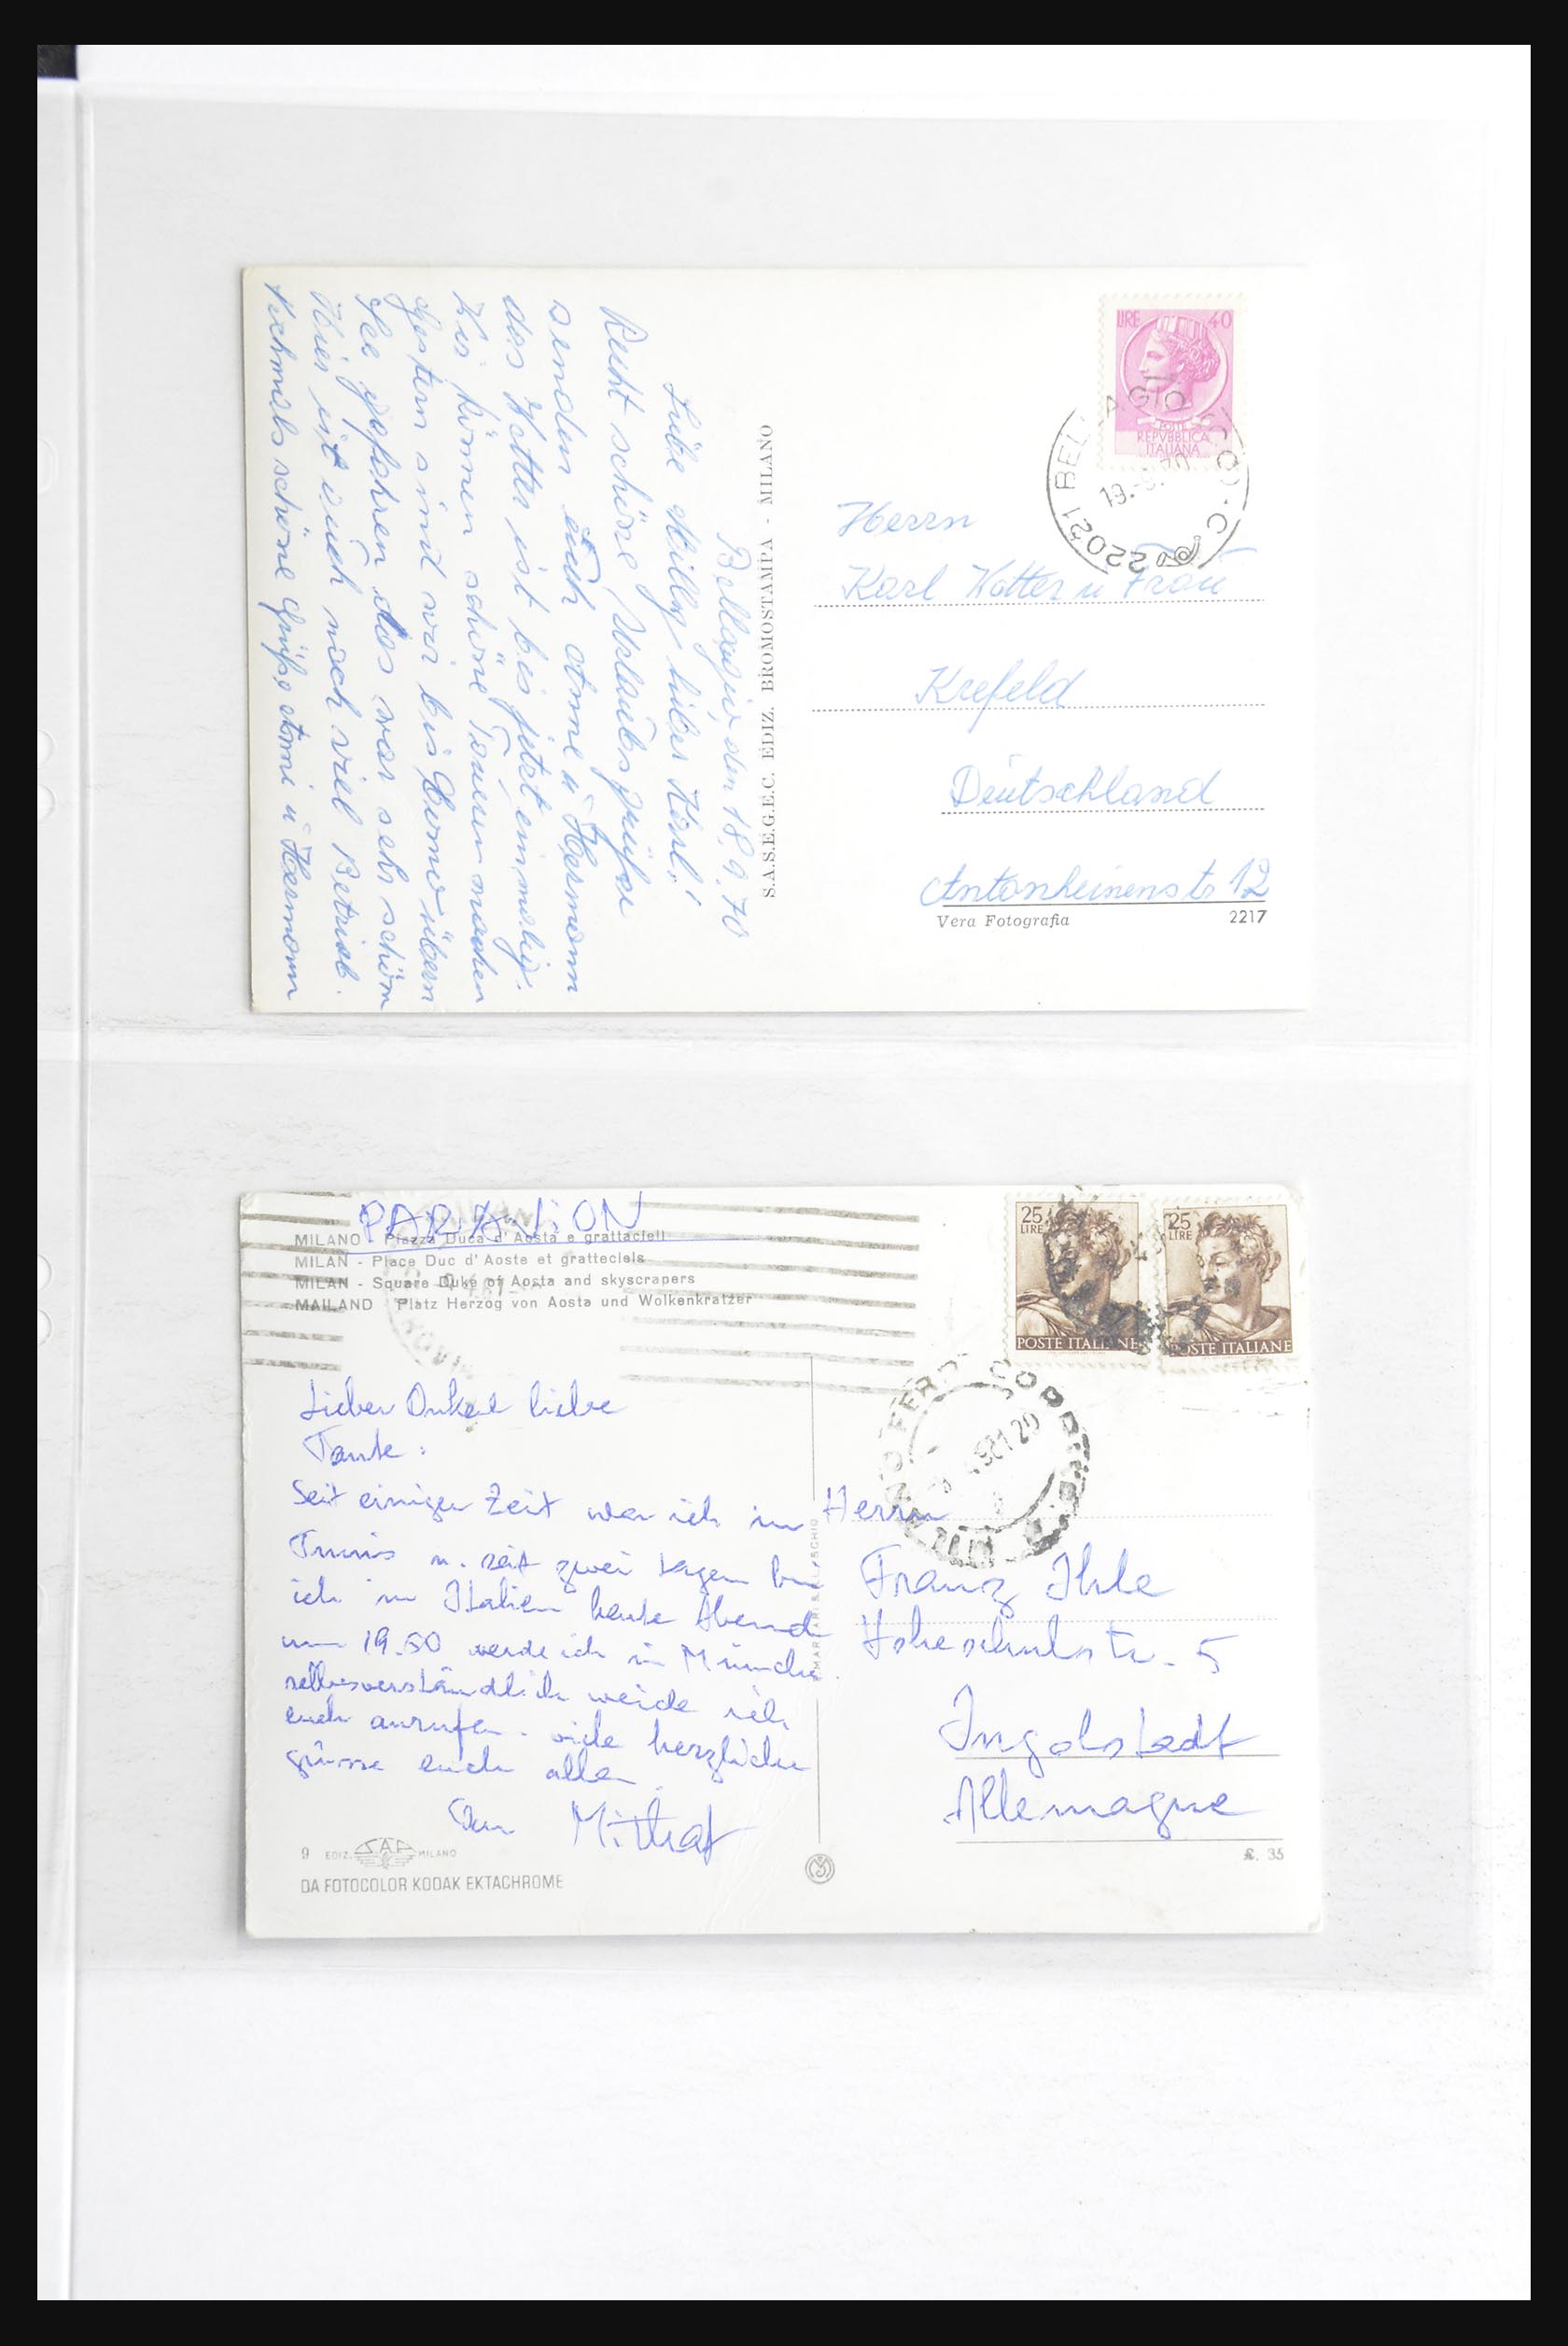 LIRE 40
POSTE
REPVBBLICA
ITALIANA
22021 BELLAGIO (CO) · C
19.-9.70
Bellagio, den 18.9.70
Liebe Milly, lieber Karl!
Recht schöne Urlaubsgrüße
senden Euch Anni u Hermann
das Wetter ist bis jetzt einmalig.
Wir können schöne Touren machen
Gestern sind wir bis übern
See gefahren das war sehr schön
Hier ist auch noch viel Betrieb.
Nochmals schöne Grüße Anni u Hermann
S.A.S.E.G.E.C. EDIZ. BROMOSTAMPA - MILANO
Herrn
Karl Hotter u Frau
Krefeld
Deutschland
Antonheinenstr 12
Vera Fotografia 2217
PAR AViON
MILANO - Piazza Duca d'Aosta e grattacieli
MILAN - Place Duc d'Aoste et gratteciels
MILAN - Square Duke of Aosta and skyscrapers
MAILAND - Platz Herzog von Aosta und Wolkenkratzer
25 LIRE
POSTE ITALIANE
25 LIRE
POSTE ITALIANE
Lieber Onkel liebe
Tante:
Seit einiger Zeit war ich in
Tunis u. seit zwei tagen bin
ich in Italien heute Abend
um 19.50 werde ich in München
selbsverständlich weide ich
euch anrufen. viele herzliche
grüsse euch allen.
Euer Mithat
Herrn
Franz Ihle
Hoheschulstr. 5
Ingolstadt
Allemagne
9 EDIZ. SAF MILANO
DA FOTOCOLOR KODAK EKTACHROME
£. 35